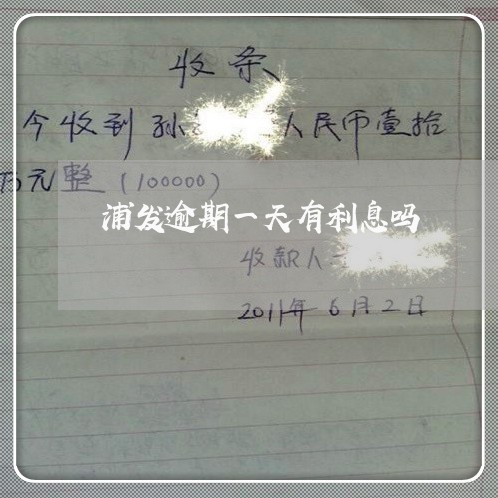 收条
今收到孙 人民币壹拾
万元整（100000）
浦发逾期一天有利息吗
收款人
2011年6月2日